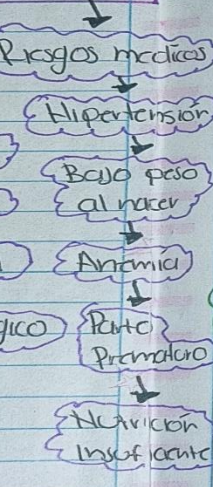 Riesgos medicos
Hipertensión
Bajo peso
al nacer
Anemia
gico
Parto
Prematuro
Nutrición
insuficiente